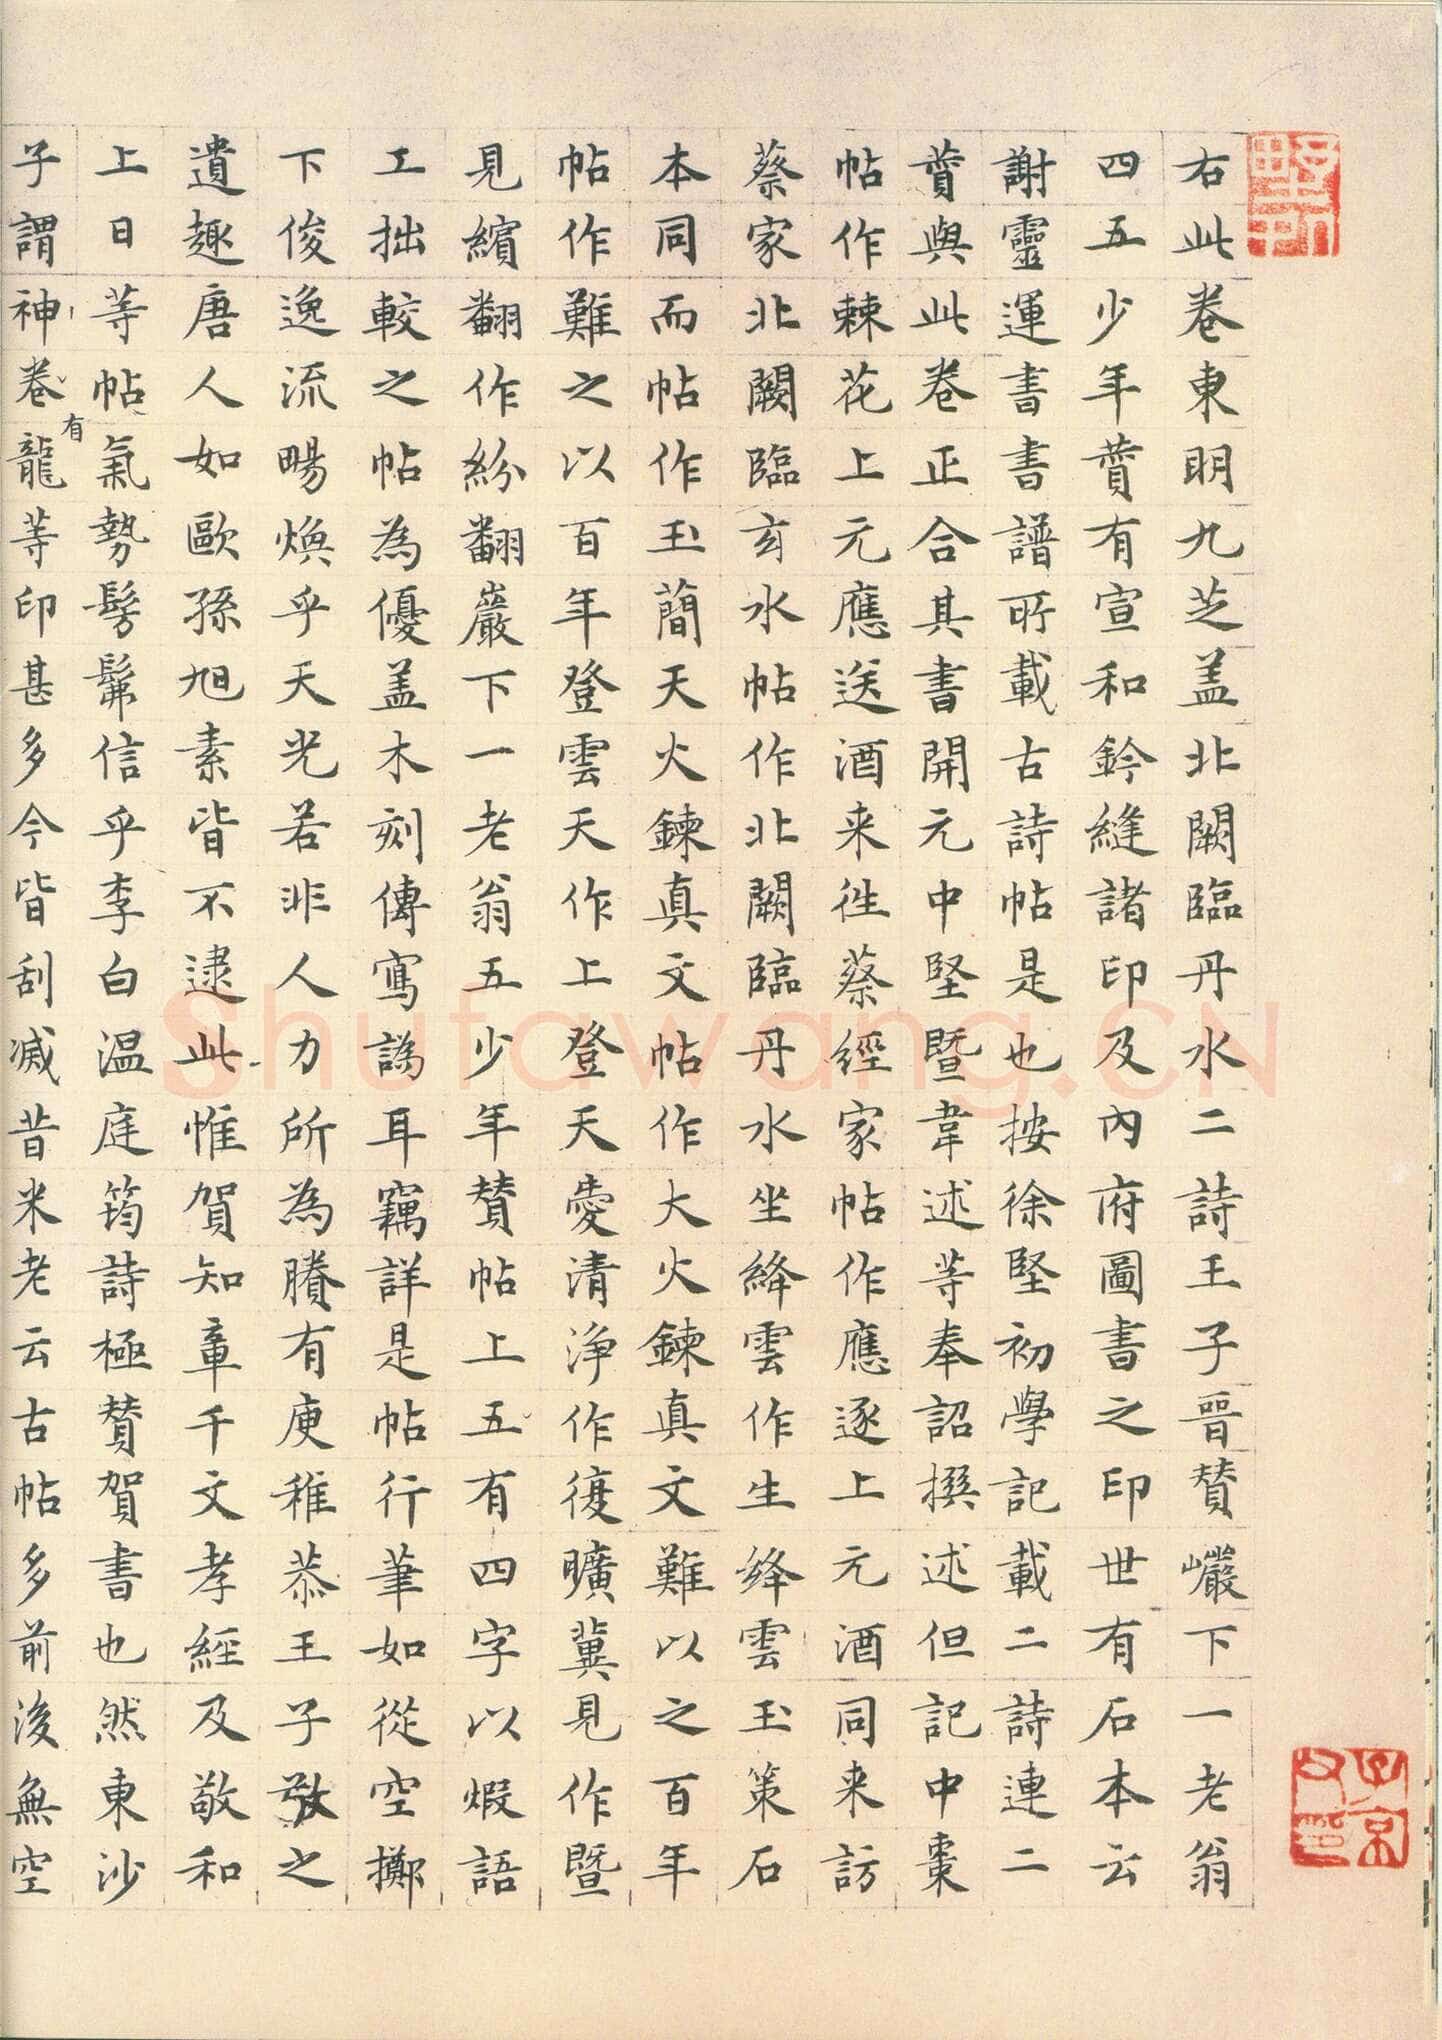 右此卷東明九芝盖北闕臨丹水二詩王子晉賛巘下一老翁
四五少年賛有宣和鈐縫諸印及內府圖書之印世有石本云
謝靈運書書譜所載古詩帖是也按徐堅初學記載二詩連二
賛與此卷正合其書開元中堅暨韋述等奉詔撰述但記中棗
帖作棘花上元應送酒来往蔡經家帖作應逐上元酒同来訪
蔡家北闕臨玄水帖作北闕臨丹水坐絳雲作生絳雲玉策石
本同而帖作玉簡天火鍊真文帖作大火鍊真文難以之百年
帖作難之以百年登雲天作上登天愛清淨作復曠冀見作暨
見繽翻作紛翻巖下一老翁五少年賛帖上五有四字以煆語
工拙較之帖為優盖木刻傳寫譌耳竊詳是帖行筆如從空擲
下俊逸流暢煥乎天光若非人力所為賸有庾稚恭王子敬之
遺趣唐人如歐孫旭素皆不逮此惟賀知章千文孝經及敬和
上日等帖氣勢髣髴信乎李白温庭筠詩極賛賀書也然東沙
子謂神卷有龍等印甚多今皆刮滅昔米老云古帖多前後無空
Shufawang.CN